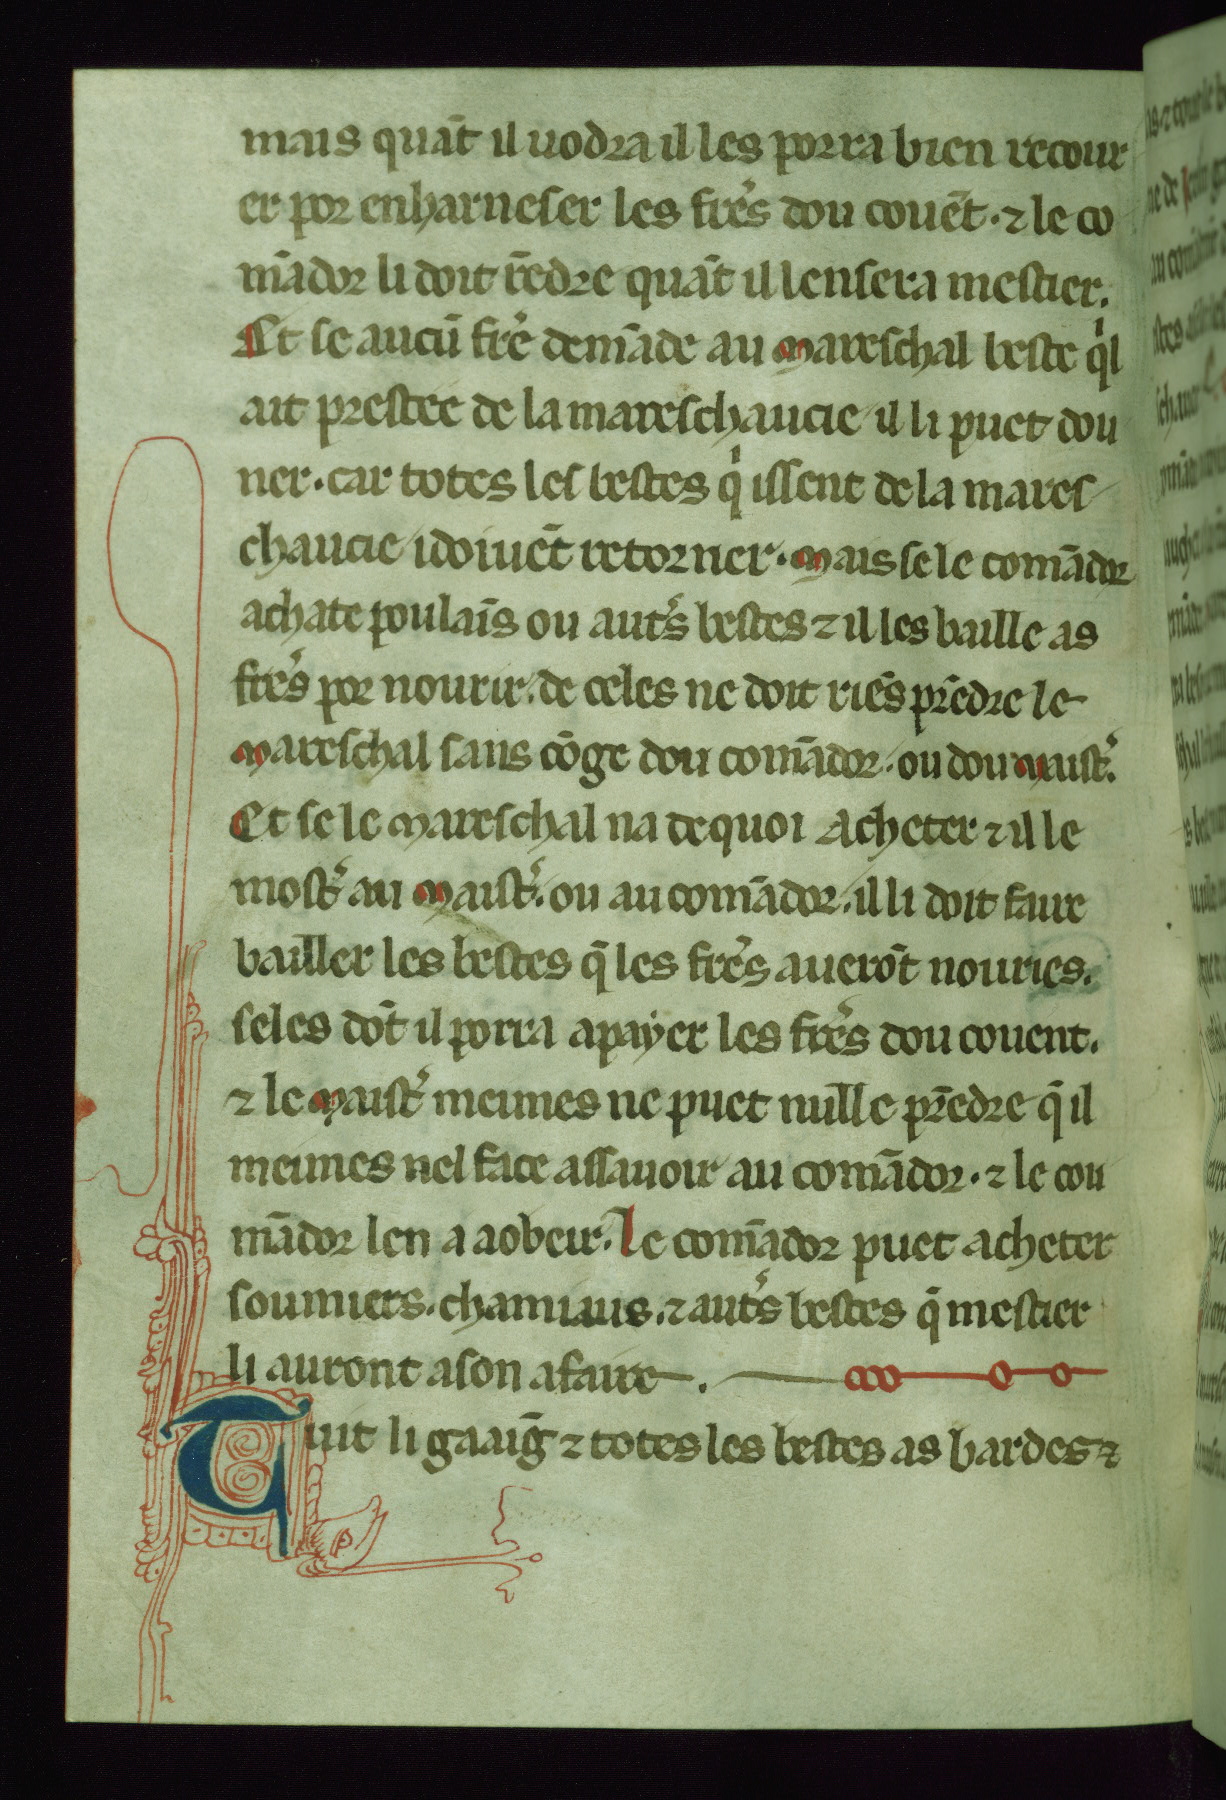 mais quāt il uodra il les porra bien recour
er por enharneser les frẽs dou couẽt · ⁊ le co
mãdor li doit rẽdre quãt il lensera mestier.
Et se aucũ frẽ demãde au mareschal beste qͥl
ait prestee de la mareschaucie il li puet dou
ner · car totes les bestes qͥ issent de la mares
chaucie idoiuẽt retorner · mais se le comãdor
achate poulaĩs ou autˢ bestes ⁊ il les baille as
frẽs por nourir. de celes ne doit riẽs prẽdre le
mareschal sans cõge dou comãdor. ou dou maist᾽.
Et se le mareschal na dequoi acheter ⁊ il le
most᾽ au maist᾽. ou au comãdor. il li doit faire
bailler les bestes q̃ les frẽs auerõt nouries.
seles dõt il porra apayer les frẽs dou couent.
⁊ le maist᾽ meimes ne puet nulle prẽdre q̃ il
meimes nel face assauoir au comãdor · ⁊ le cou
mãdor len a aobeir. le comãdor puet acheter
soumiers. chamiaus. ⁊ autˢ bestes q̃ mestier
li auront a son afaire.
Tuit li gaaig̃ ⁊ totes les bestes as bardes ⁊